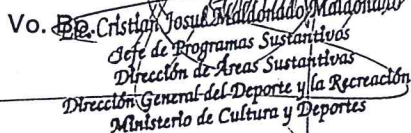 Vo. Bo. Cristian Josué Maldonado Maldonado
Jefe de Programas Sustantivos
Dirección de Áreas Sustantivas
Dirección General del Deporte y la Recreación
Ministerio de Cultura y Deportes